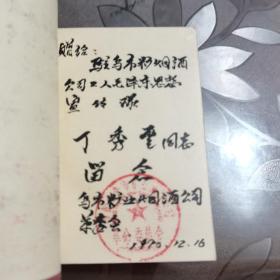 赠给:
驻乌市糖烟酒
公司工人毛泽东思想
宣传队
丁秀 同志
留念
乌市糖业烟酒公司
革委会
1970.12.16